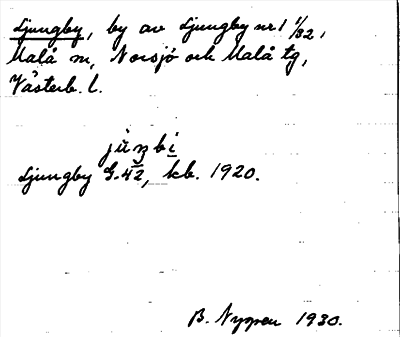 Ljungby, by av Ljungby nr 1 1/32,
Malå sn, Norsjö och Malå tg,
Västerb. l.
jùŋbi
Ljungby G.42, kb. 1920.
B. Nyman 1930.